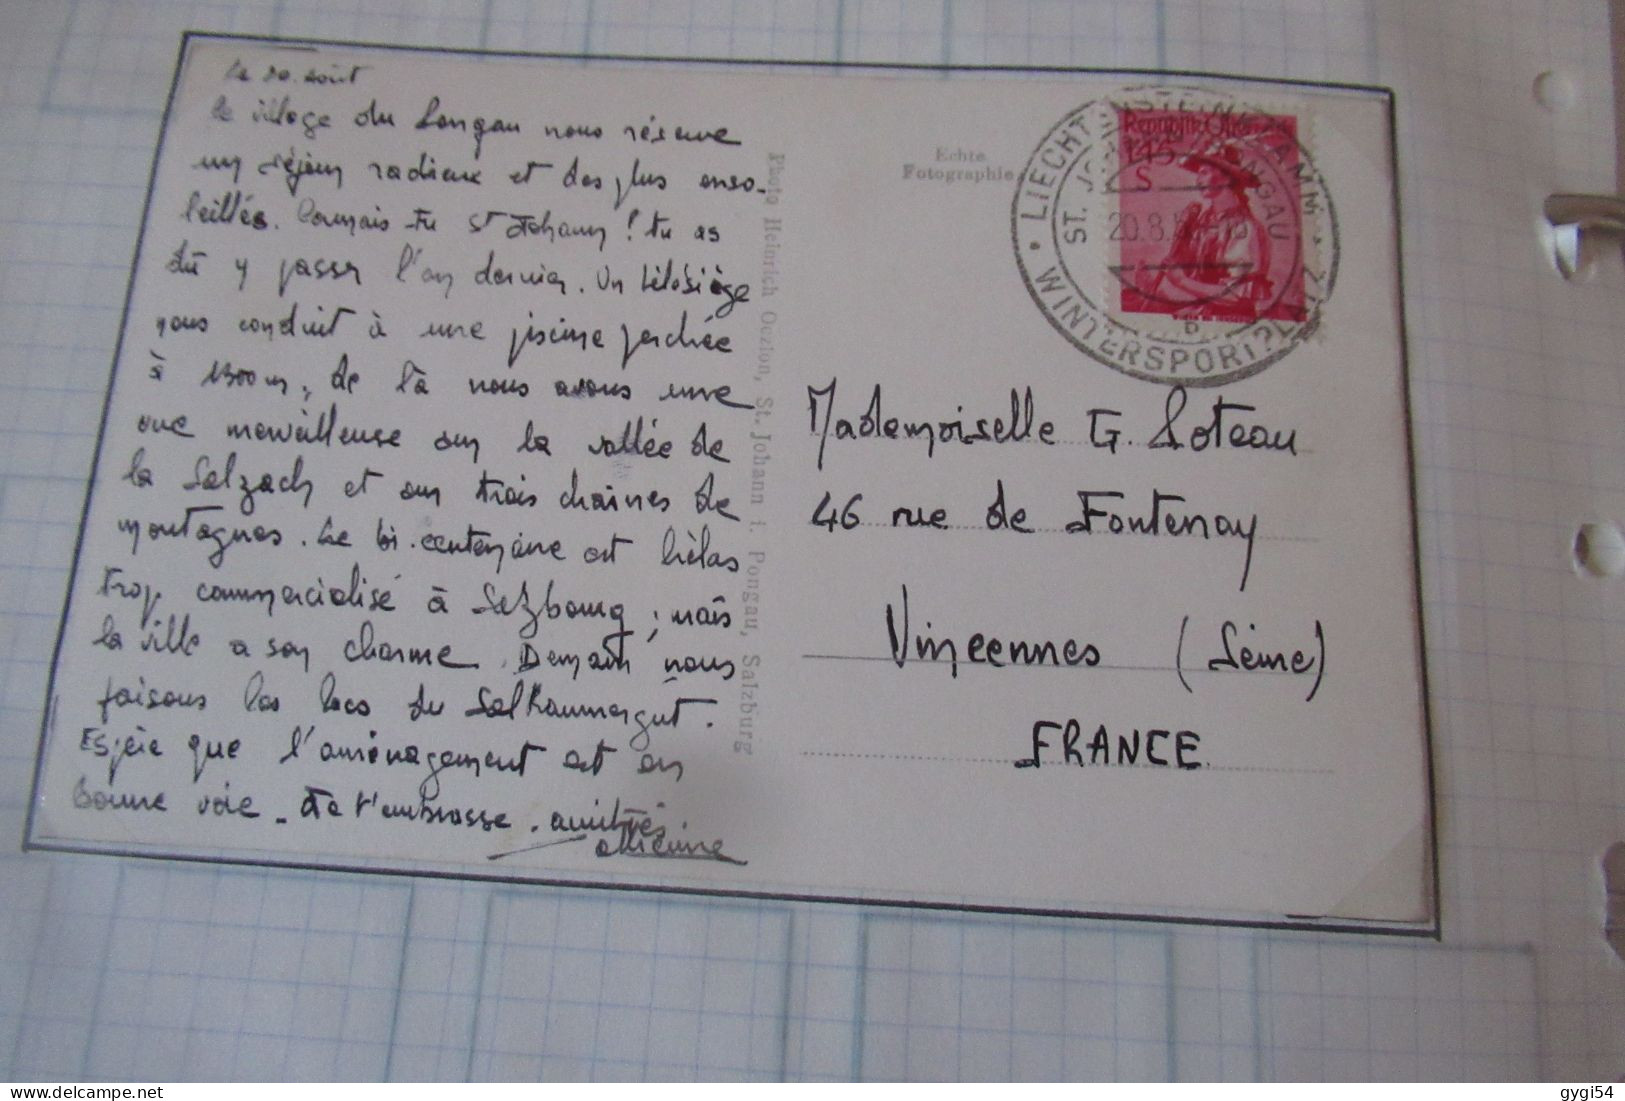 le 20. août
le village du Longau nous réserve
un séjour radieux et des plus enso-
leillés. Connais-tu St Johann ! tu as
dû y passer l'an dernier. Un télésiège
nous conduit à une piscine perchée
à 1300 m, de là nous avons une
vue merveilleuse sur la vallée de
la Salzach et sur trois chaines de
montagnes. Le bi-centenaire est hélas
trop commercialisé à Salzbourg ; mais
la ville a son charme. Demain nous
faisons les lacs du Salkammergut.
Espère que l'aménagement est en
bonne voie - t'embrasse. amitiés
Photo Heinrich Oczlon, St. Johann i. Pongau, Salzburg
Echte
Fotographie
Republik Österreich
1.45
S
LIECHTENSTEINKLAMM
ST. JOHANN PONGAU
20.8.5
b
WINTERSPORTPLATZ
Mademoiselle G. Loteau
46 rue de Fontenay
Vincennes (Seine)
FRANCE
gygi54